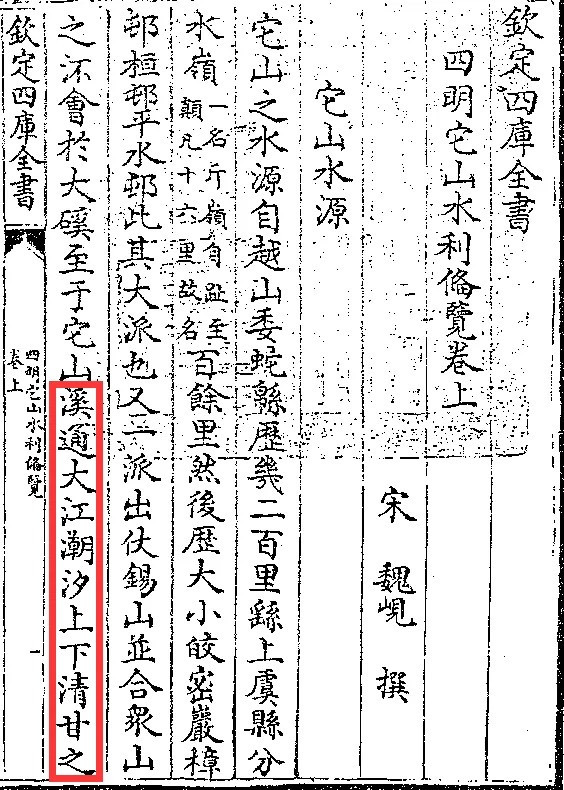 欽定四庫全書
四明它山水利備覽卷上
宋 魏峴 撰
它山水源
它山之水源自越山委蛇縣歴幾二百里繇上虞縣分
水嶺一名斤嶺自趾至顛凡十六里故名百餘里然後歴大小皎密巖樟
邨桓邨平水邨此其大派也又二派出仗錫山並合衆山
之流會於大磎至于它山溪通大江潮汐上下清甘之
欽定四庫全書
四明它山水利備覽
卷上
一